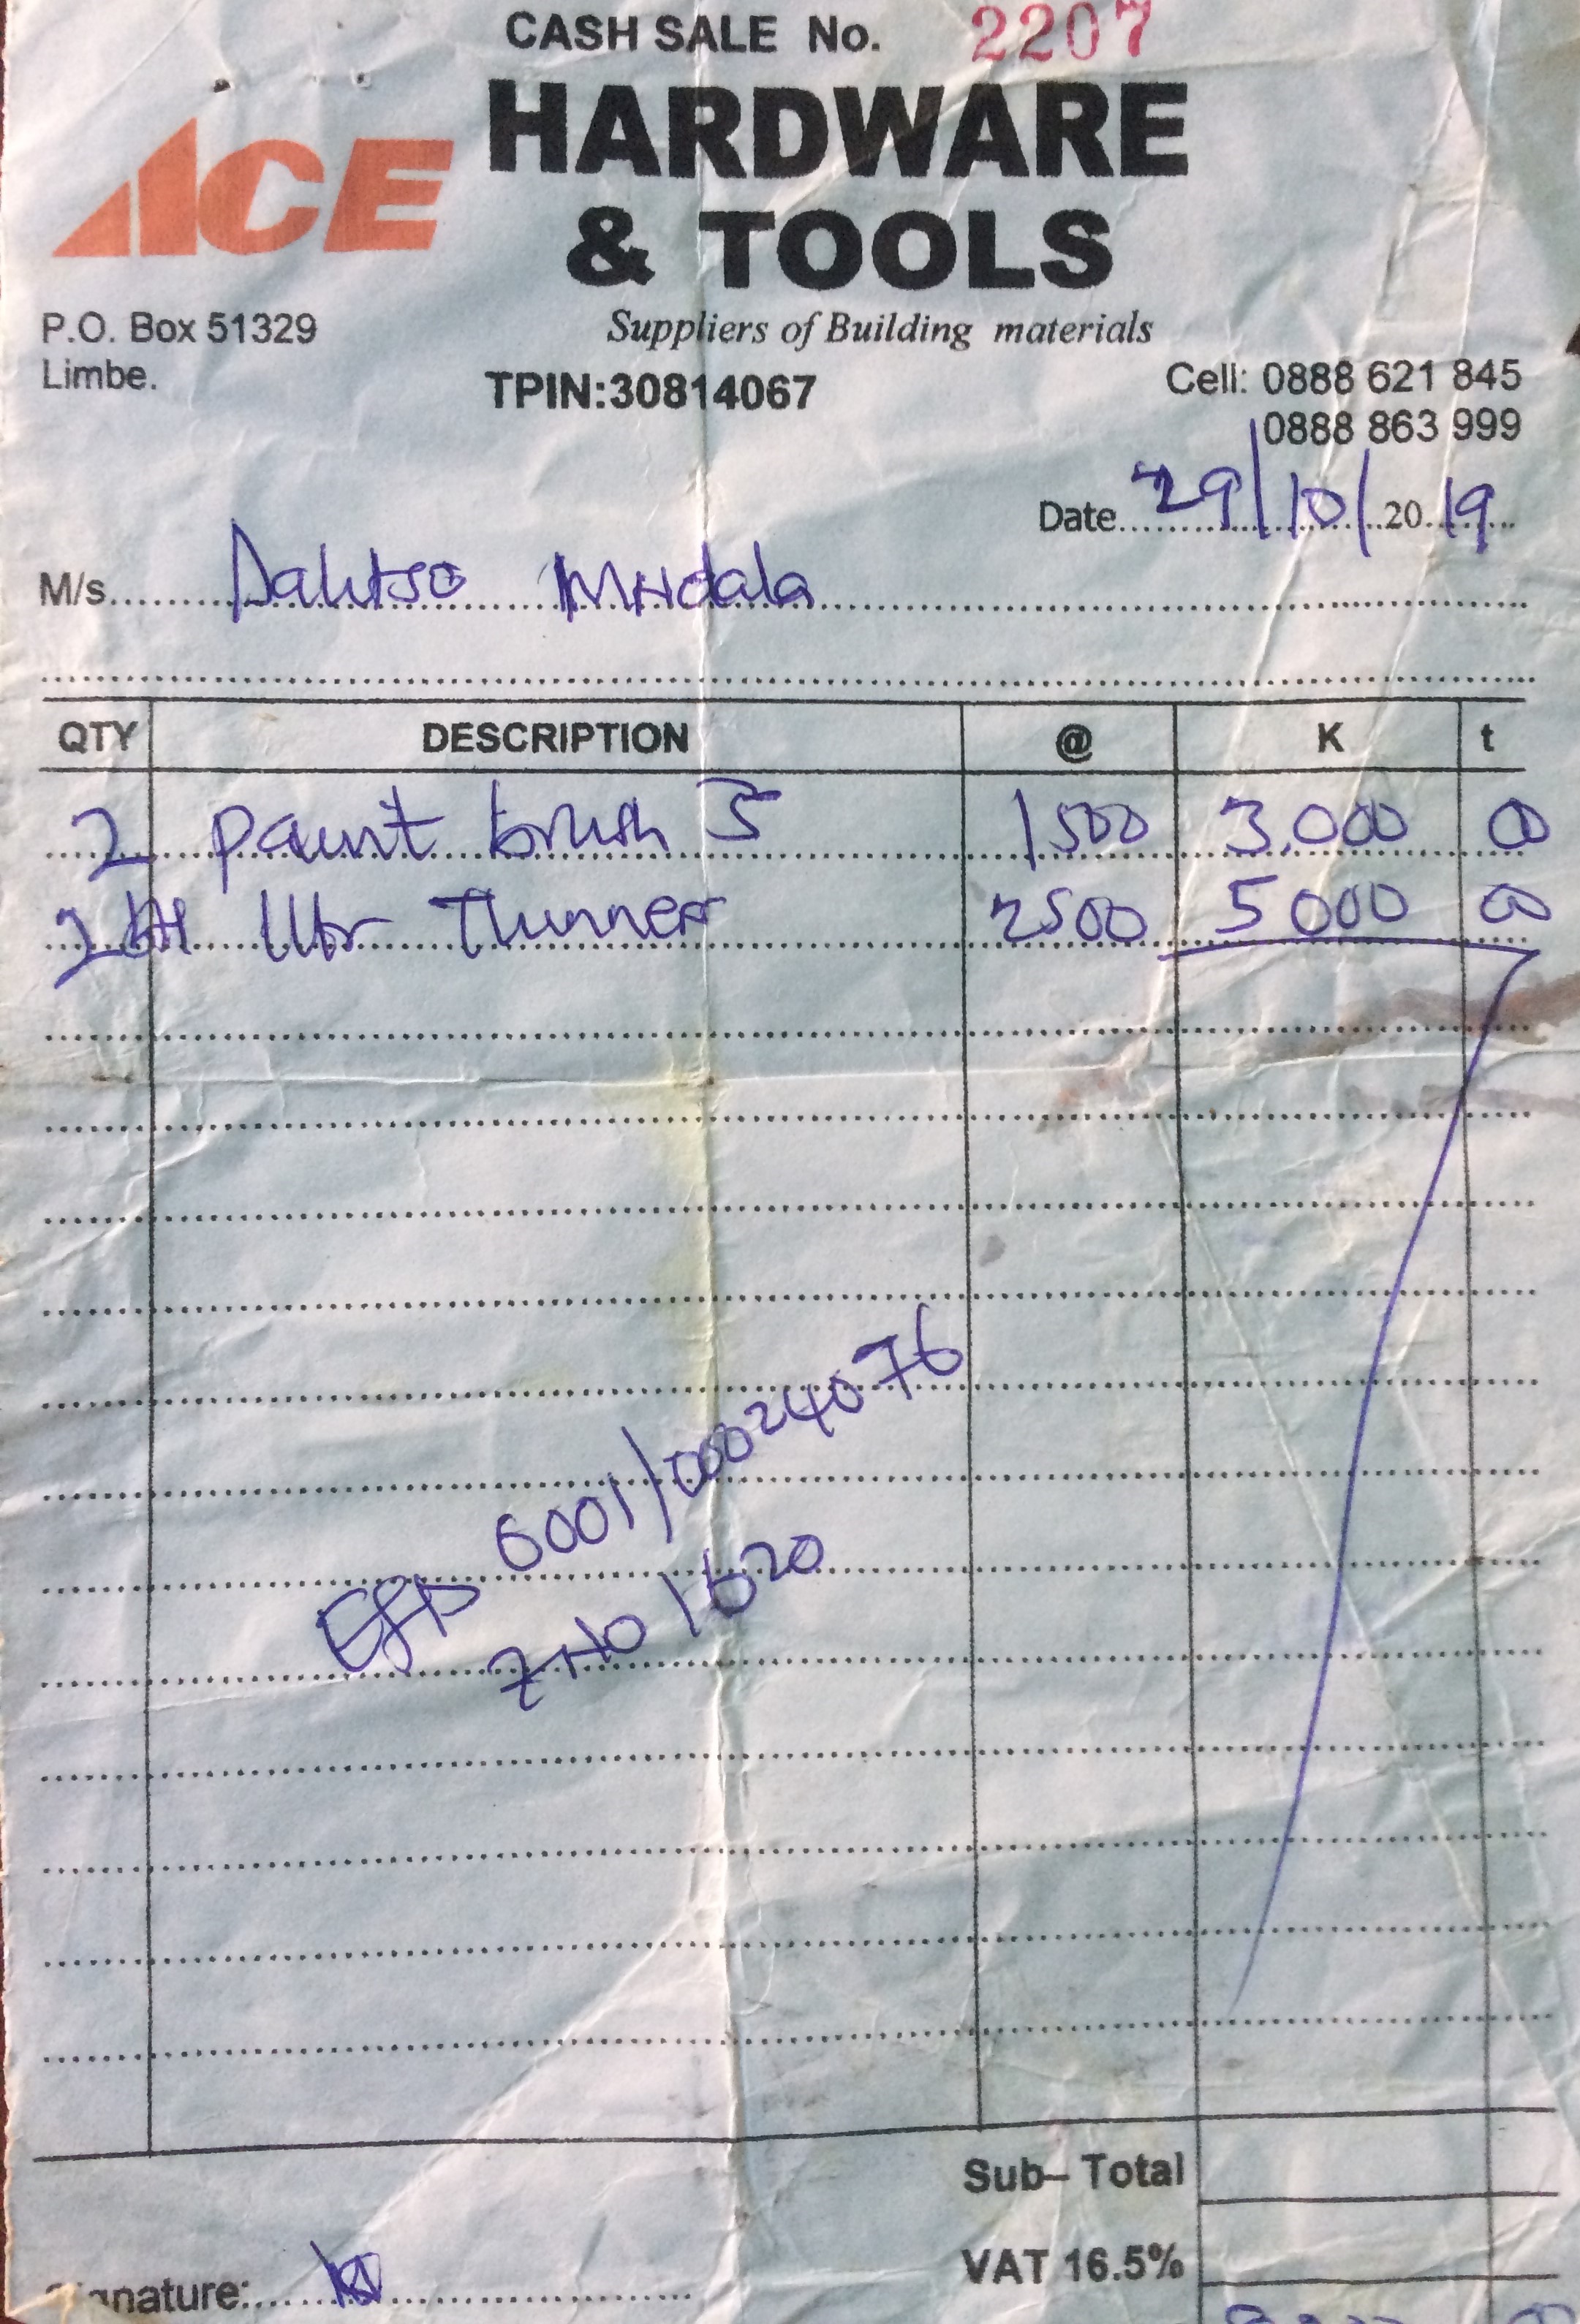 CASH SALE No. 2207
ACE HARDWARE
& TOOLS
Suppliers of Building materials
P.O. Box 51329
Limbe.
TPIN:30814067
Cell: 0888 621 845
0888 863 999
Date 29/10/2019
M/s Dalitso
QTY DESCRIPTION @ K t
2 paint brush 5 1500 3,000 00
2 ltr Thinner 2500 5000 00
EFD 6001/00024076
ZNo 1620
Sub- Total
VAT 16.5%
Signature: